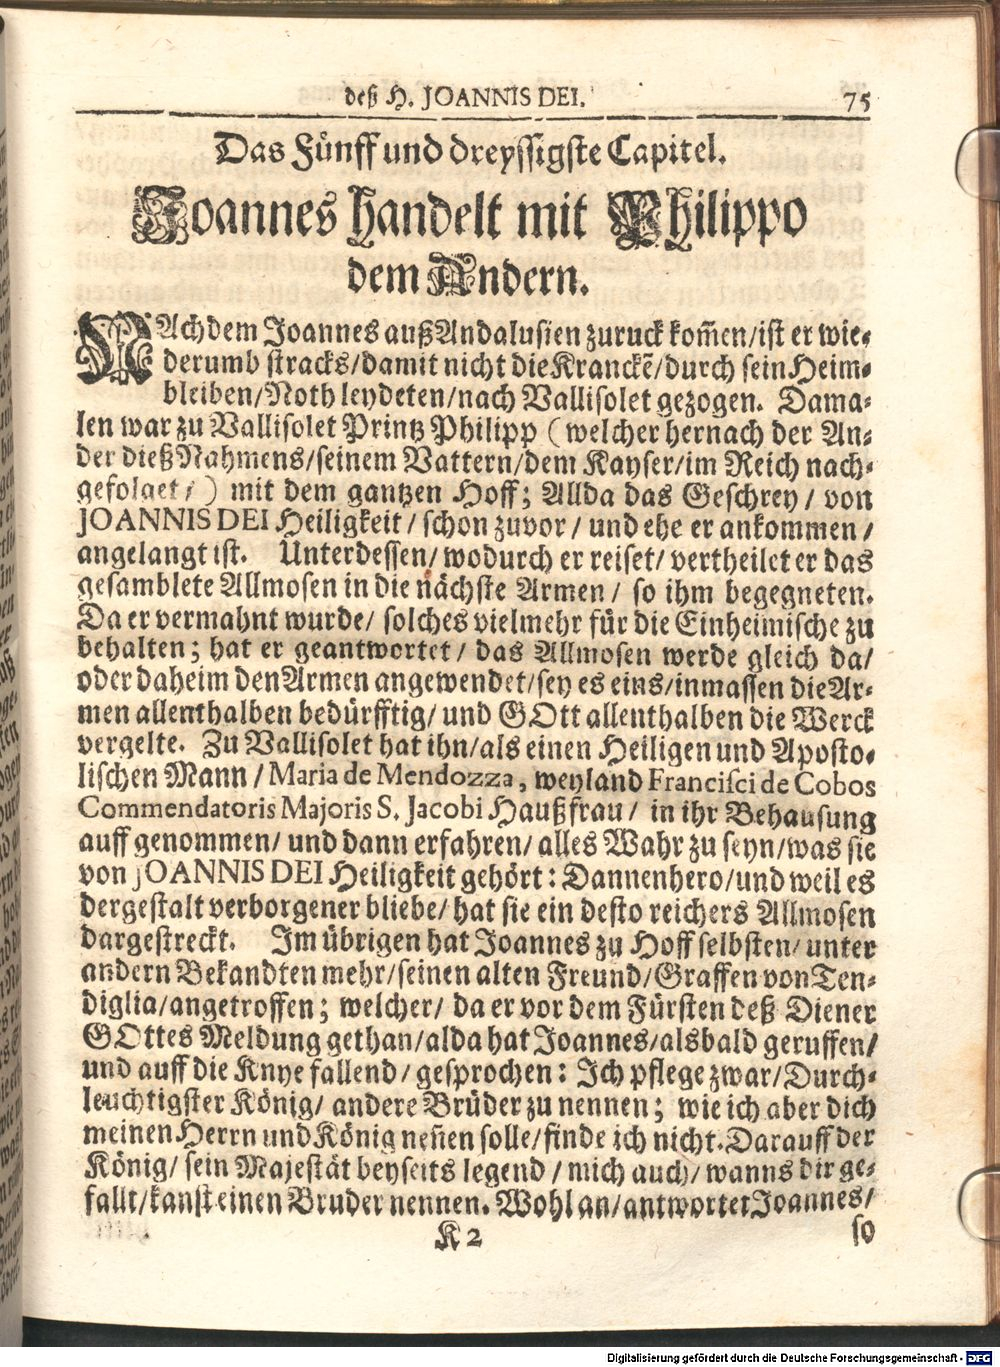 deß H. JOANNIS DEI. 75
Das Fünff und dreyssigste Capitel.
Joannes handelt mit Philippo
dem Andern.
NAchdem Joannes auß Andalusien zuruck kom̃en/ist er wie-
derumb stracks/damit nicht die Kranckẽ/durch sein Heim-
bleiben/Noth leydeten/nach Vallisolet gezogen. Dama-
len war zu Vallisolet Printz Philipp (welcher hernach der An-
der dieß Nahmens/seinem Vattern/dem Kayser/im Reich nach-
gefolget/) mit dem gantzen Hoff; Allda das Geschrey/ von
JOANNIS DEI Heiligkeit/ schon zuvor/ und ehe er ankommen/
angelangt ist. Unterdessen/ wodurch er reiset/ vertheilet er das
gesamblete Allmosen in die nächste Armen/ so ihm begegneten.
Da er vermahnt wurde/ solches vielmehr für die Einheimische zu
behalten; hat er geantwortet/ das Allmosen werde gleich da/
oder daheim den Armen angewendet/sey es eins/inmassen die Ar-
men allenthalben bedürfftig/ und GOtt allenthalben die Werck
vergelte. Zu Vallisolet hat ihn/als einen Heiligen und Aposto-
lischen Mann/ Maria de Mendozza, weyland Francisci de Cobos
Commendatoris Majoris S. Jacobi Haußfrau/ in ihr Behausung
auffgenommen/ und dann erfahren/ alles Wahr zu seyn/was sie
von JOANNIS DEI Heiligkeit gehört: Dannenhero/und weil es
dergestalt verborgener bliebe/ hat sie ein desto reichers Allmosen
dargestreckt. Im übrigen hat Joannes zu Hoff selbsten/ unter
andern Bekandten mehr/seinen alten Freund/Graffen von Ten-
diglia/angetroffen; welcher/ da er vor dem Fürsten deß Diener
GOttes Meldung gethan/alda hat Joannes/alsbald geruffen/
und auff die Knye fallend/gesprochen: Ich pflege zwar/Durch-
leuchtigster König/ andere Brüder zu nennen; wie ich aber dich
meinen Herrn und König neñen solle/finde ich nicht. Darauff der
König/ sein Majestät beyseits legend/ mich auch/ wanns dir ge-
fallt/kanst einen Bruder nennen. Wohlan/antwortet Joannes/
K 2 so
Digitalisierung gefördert durch die Deutsche Forschungsgemeinschaft - DFG